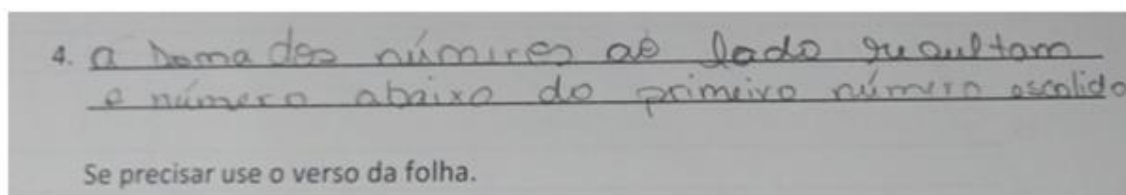 4. a soma dos númires ao lado resultam
o número abaixo do primeiro número escolido
Se precisar use o verso da folha.